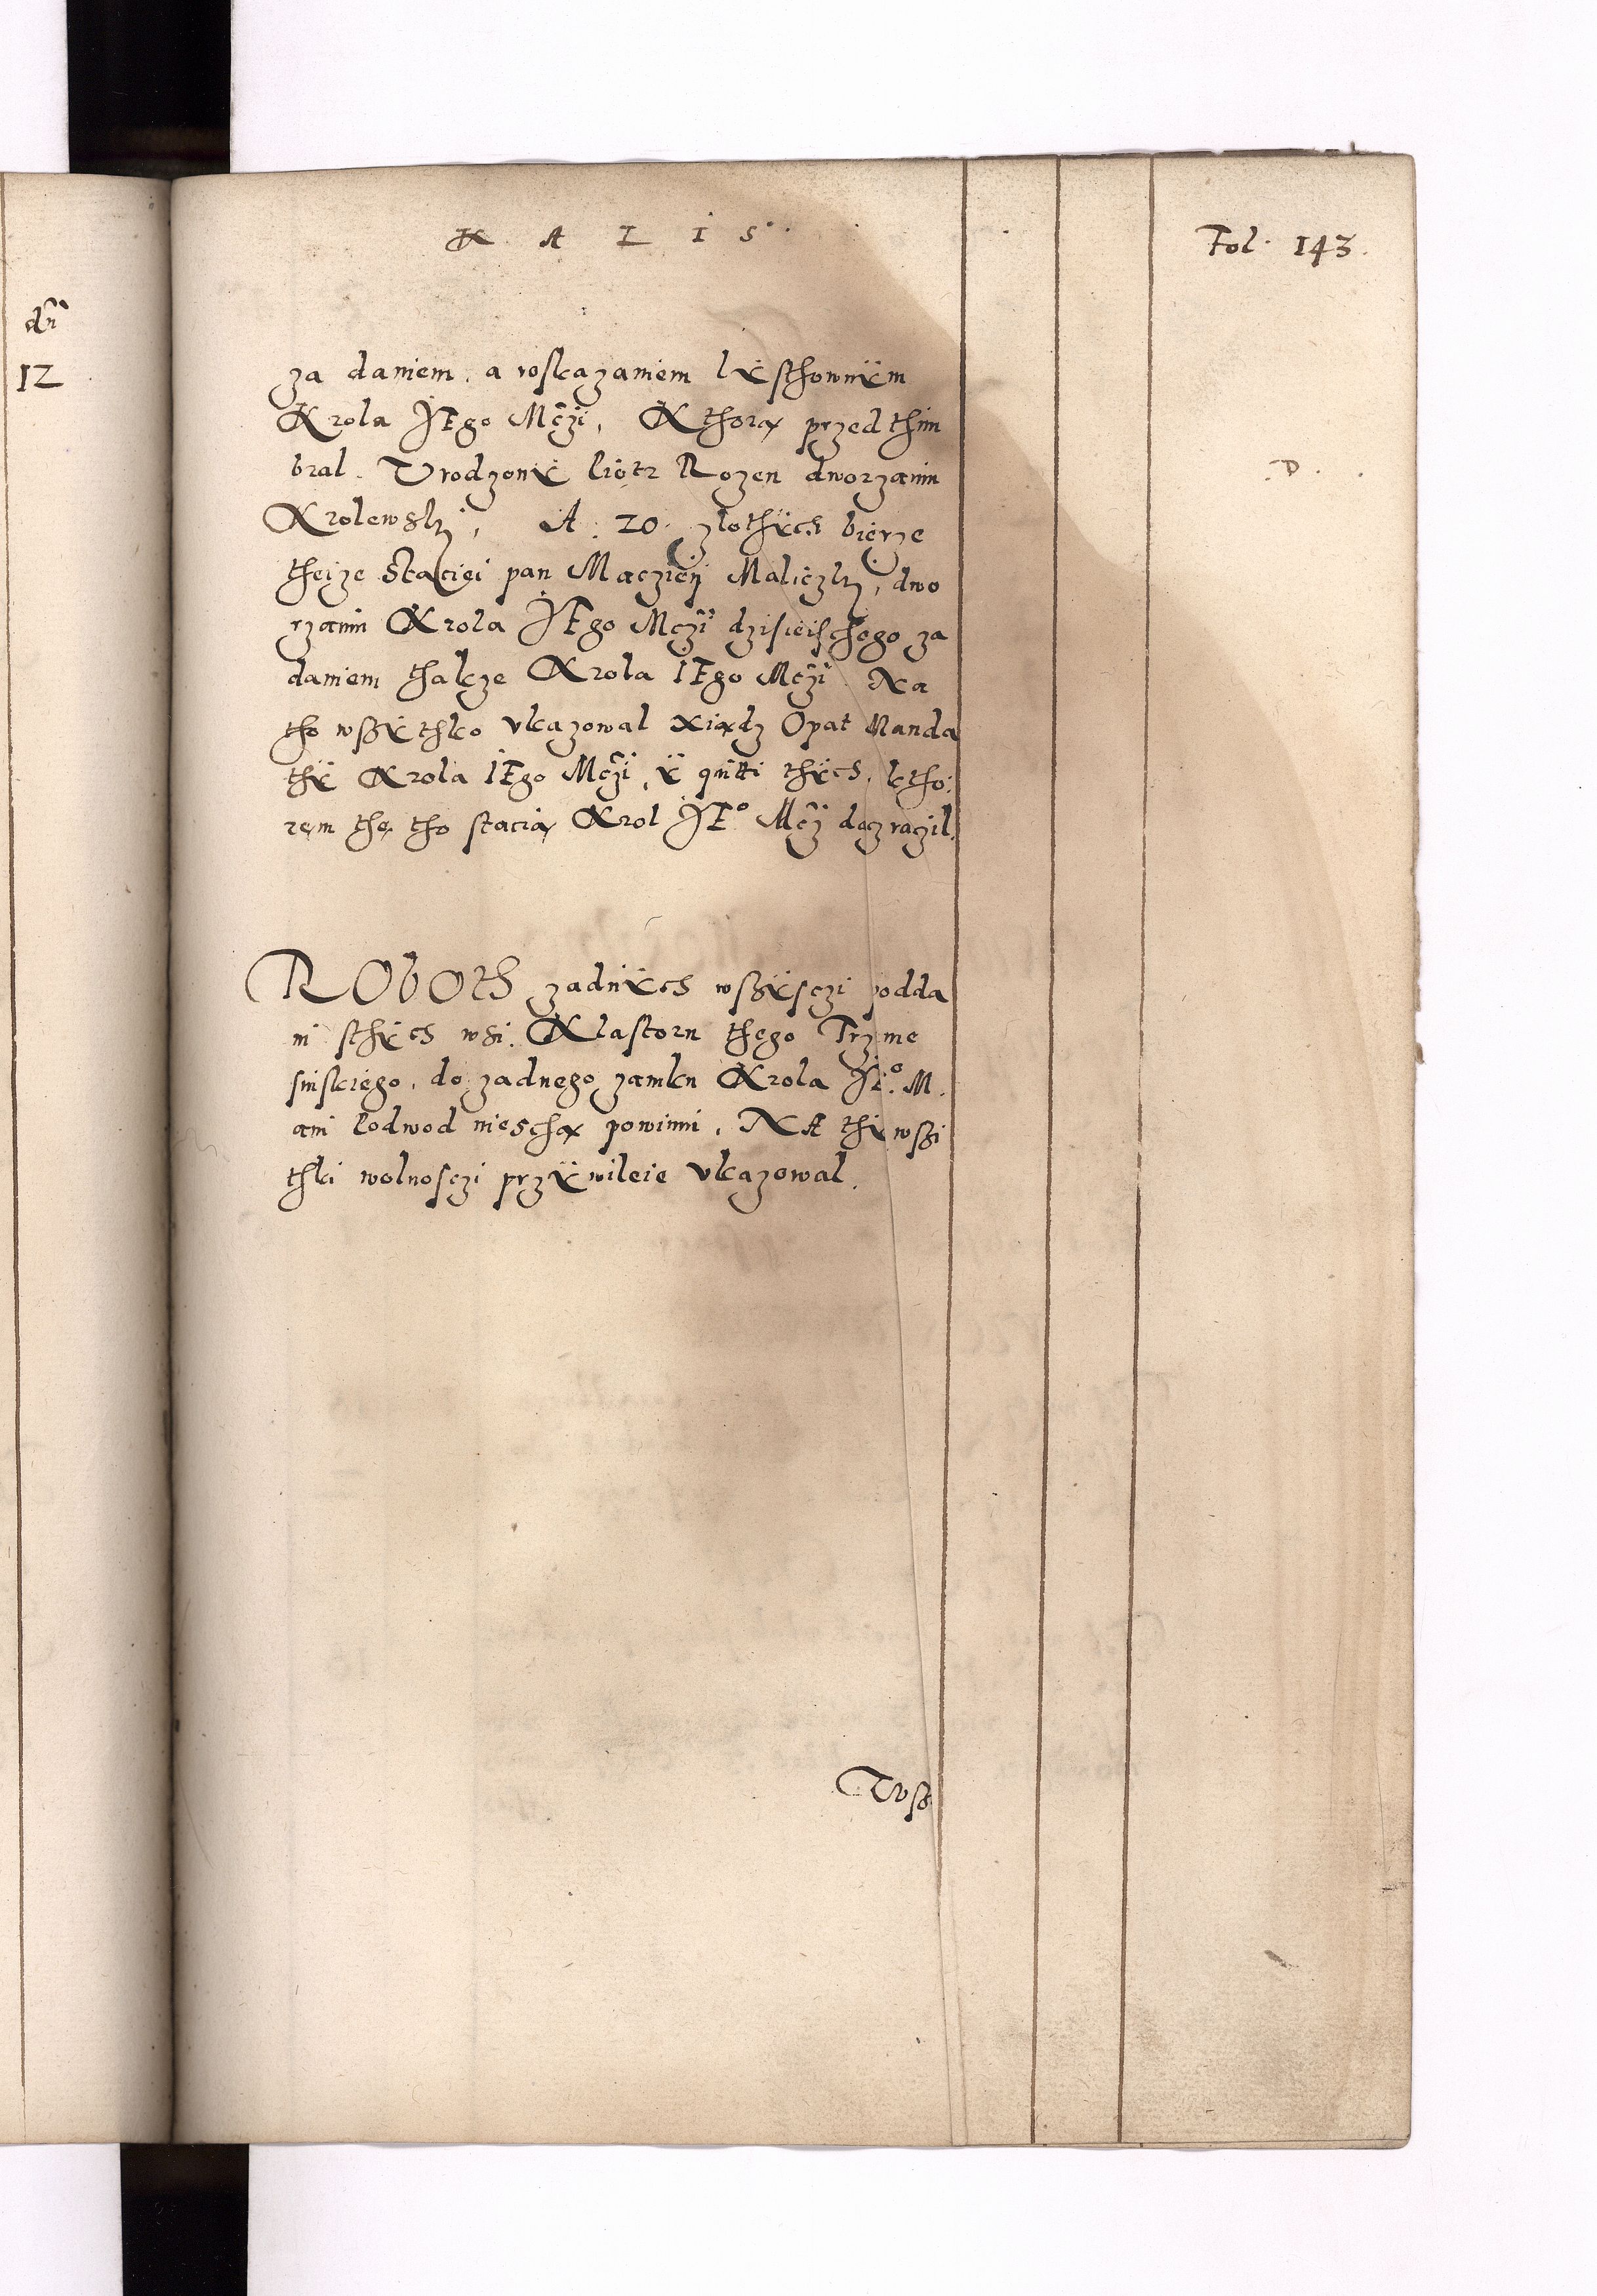 K A L I S.
Fol. 143.
za daniem, a roskazaniem lÿsthownÿm
Krola JEgo Mčzi, Kthorą przed thim
bral. Urodzonÿ Piotr Rozen dworzanin
Krolewskj, A. 20. zlothÿch bierze
theize Staciei pan Macziej Maliczkj, dwo
rzanin Krola JEgo Mczi dzisieischego za
daniem thakze Krola IEgo Mczi Na
tho wßÿthko vkazowal xiądz Opat Manda
thÿ Krola IEgo Mczi, ÿ quitti thÿch, ktho:
rem thę tho stacią Krol JEº Mcz daczraczil.
RObOth zadnÿch wßÿsczi podda
ni sthÿch wsi. Klastoru thego Trzme
sinskiego, do zadnego zamku Krola Jeº. M.
ani Podwod nieschą powinni, NA thÿ wßi
thki wolnosczi przÿwileie vkazowal.
Tvß.
D.
dni
12